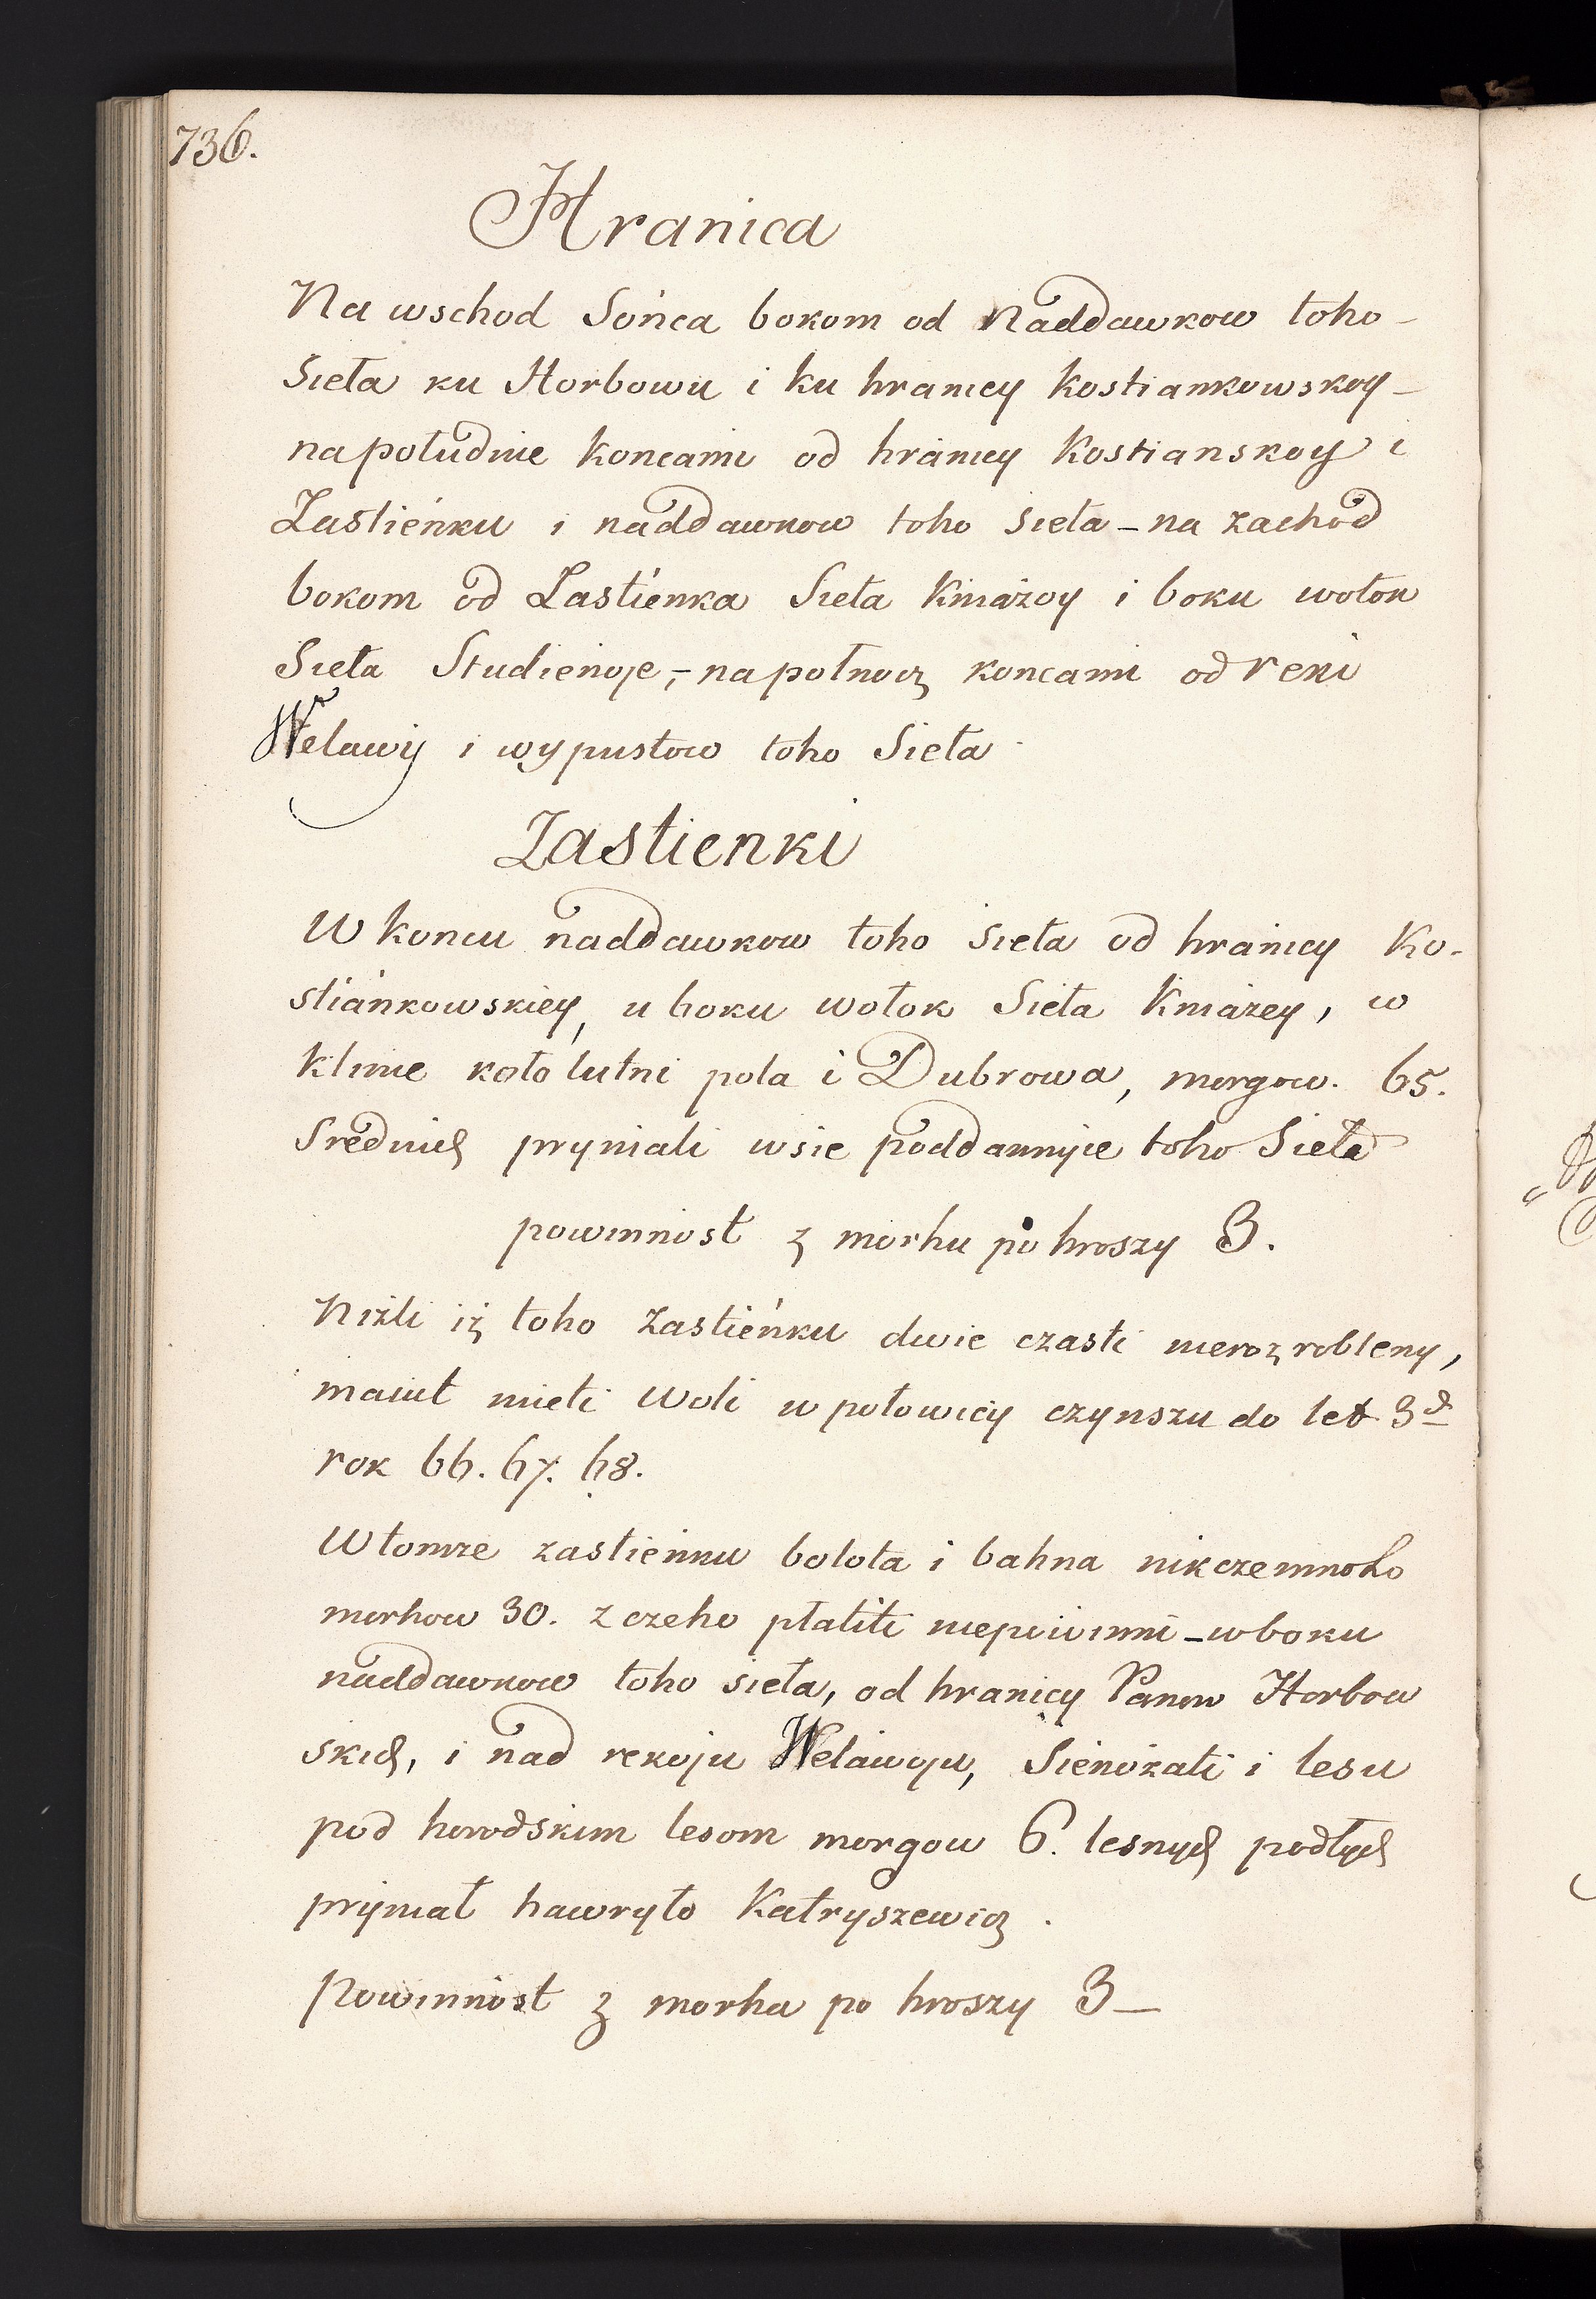 736.
Hranica
Na wschod Sońca bokom od Naddawkow toho –
Sieła ku Horbowu i ku hranicy Kostiankowskoy –
na południe koncami od hranicy Kostianskoy i
Zastieńku i naddawkow toho sieła – na zachod
bokom od Zastienka Sieła Kniażoy i boku wołok
Sieła Studienoje, – na połnocz koncami od reki
Welawy i wypustow toho Sieła
Zastienki
W koncu naddawkow toho sieła od hranicy Ko-
stiańkowskiey, u boku wołok Sieła Kniażey, w
klinie koło lutni pola i Dubrowa, morgow. 65.
Srednich pryniali wsie poddannyie toho Sieła
powinnost z morhu po hroszy 3.
Niżli iz toho Zastieńku dwie czasti nierozrobleny,
maiut mieti woli w połowicy czynszu do let 3ch
rok 66. 67. 68.
W tomże zastieńku bołota i bahna nikczemnoho
morhow 30. z czeho płatiti niepowinni – w boku
naddawkow toho sieła, od hranicy Panow Horbow
skich, i nad rekoju Welawoju, Sienożati i lesu
pod horodskim lesom morgow 6. lesnych podłych
pryniał hawryło Katryszewicz.
Powinnost z morha po hroszy 3 –